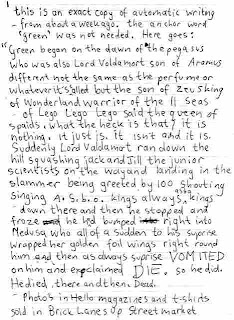 this is an exact copy of automatic writing
- from about a week ago. the anchor word
'green' was not needed. Here goes:
"Green begon on the dawn of the pegasus
who was also Lord Valdamort son of Aramus
different not the same as the perfume or
whatever it's called but the son of zeus king
of Wonderland warrior of the 11 Seas
- of Lego Lego Lego said the queen of
spaids. what the heck is that? it is
nothing. it just is. it isnt and it is.
Suddenly Lord Valdamort ran down the
hill squashing jack and Jill the junior
scientists on the way and landing in the
slammer being greeted by 100 shouting
singing kings always, kings
down there and then he stopped and
froze and he bumped right into
Medusa who all of a sudden to his suprise
wrapped her golden foil wings right round
him and then as always suprise VOMITED
on him and exclaimed DIE. so he did.
He died, there and then. Dead.
- Photos in Hello magazines and t-shirts
sold in Brick Lanes Up Street market